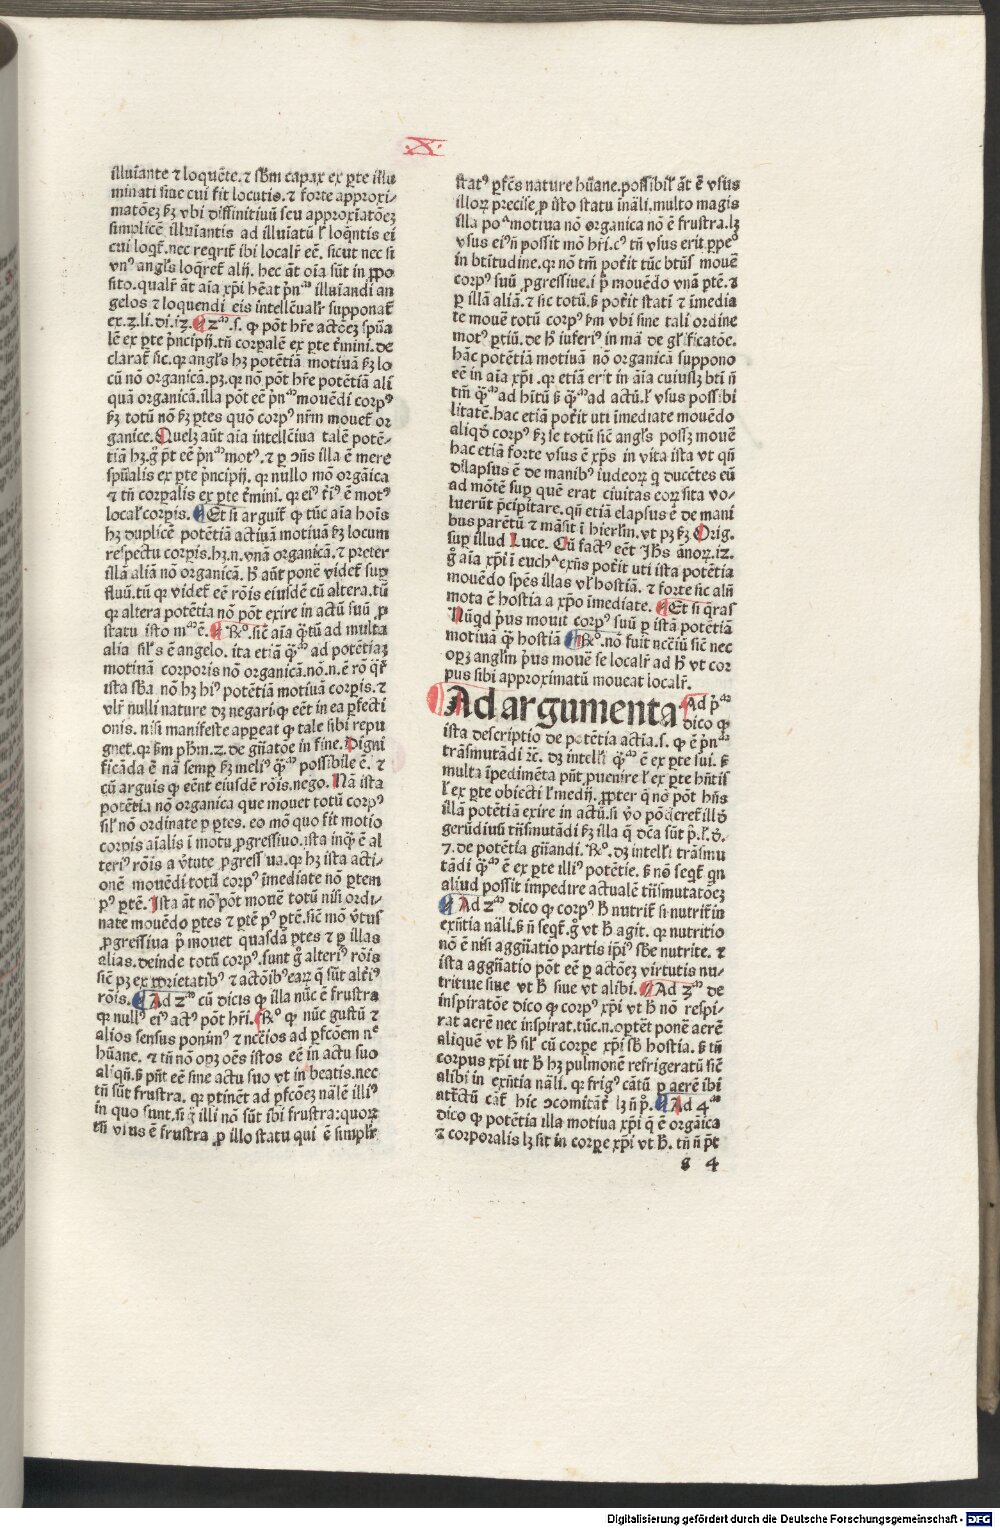 X
illuīante ⁊ loquēte. ⁊ sb̄m capax ex ꝑte illu
minati siue cui fit locutis. ⁊ forte approxi⸗
matōeꝫ ẞꝫ vbi diffinitiuū seu approxīatōeꝫ
simplicē illuīantis ad illuīatū ł loq̄ntis ei
cui loqt̄. nec reqrit̄ ibi localr̄ eē. sicut nec si
vnꝰ angl̄s loq̄ret̄ alij. hec āt oīa sūt in ꝓpo
sito. qualr̄ āt aīa xp̄i hēat p̄nᵃᵐ illuīandi an
gelos ⁊ loquendi eis intellc̄ualr̄ supponat̄
ex. ꝫ. li. di. iꝫ. zᵃᵐ. s. ꝙ pōt hr̄e actōeꝫ spūa
lē ex ꝑte p̄ncipij. tn̄ corpalē ex ꝑte t̄mini. de
clarat̄ sic. qꝛ angl̄s hꝫ potētiā motiuā ẞꝫ lo
cū nō organicā. pꝫ. qꝛ nō pōt hr̄e potētiā ali
quā organicā. illa pōt eē p̄nᵃᵐ mouēdi corpꝰ
ẞꝫ totū nō ẞꝫ ꝑtes quō corpꝰ nr̄m mouet̄ or
ganice. Quelꝫ aūt aīa intellc̄iua talē potē⸗
tiā hꝫ. g̊ p̄t eē p̄nᵃᵐ motꝰ. ⁊ ꝑ ↄn̄s illa ē mere
spūalis ex ꝑte p̄ncipij. qꝛ nullo mō orgāica
⁊ tn̄ corꝑalis ex ꝑte t̄mini. qꝛ eiꝰ t̄iꝰ ē motꝰ
local̄ corpis. Et si arguit̄ ꝙ tūc aīa hoīs
hꝫ duplicē potētiā actiuā motiuā ẞꝫ locum
respectu corpis. hꝫ. n. vnā organicā. ⁊ preter
illā aliā nō organicā. h̄ aūt ponē videt̄ suꝑ
fluū. tū qꝛ videt̄ eē rōis eiusdē cū altera. tū
qꝛ altera potētia nō pōt exire in actū suū ꝓ
statu isto mᵃ ē. ℞ᵒ. sic̄ aīa q̄tū ad multa
alia sil̄s ē angelo. ita etiā qᵃ̄ᵐ ad potētiaꝫ
motiuā corporis nō organicā. nō. n. ē rō q̄r̄
ista sb̄a nō hꝫ hiꝰ potētiā motiuā corpis. ⁊
vlr̄ nulli nature dꝫ negari ꝙ eēt in ea ꝑfecti
onis. nisi manifeste appeat ꝙ tale sibi repu
gnet. qꝛ ẞm ph̄m. z. de gn̄atōe in fine. Digni
ficāda ē nā semꝑ ẞꝫ meliꝰ qᵃ̄ᵐ possibile ē. ⁊
cū arguis ꝙ eēnt eiusdē rōis. nego. Nā ista
potētia nō organica que mouet totū corpꝰ
sil̄ nō ordinate ꝑ ꝑtes. eo mō quo fit motio
corpis aīalis ī motu ꝓgressiuo. ista inq̄ ē al
teriꝰ rōis a v̄tute ꝓgressiua. qꝛ hꝫ ista acti⸗
onē mouēdi totū corpꝰ īmediate nō ꝑtem
pꝰ ꝑtē. Ista āt nō pōt mouē totū nisi ordi⸗
nate mouēdo ꝑtes ⁊ ꝑtē pꝰ ꝑtē. sic̄ mō v̄tus
ꝓgressiua p̄ mouet quasdā ꝑtes ⁊ ꝑ illas
alias. deinde totū corpꝰ. sunt g̊ alteriꝰ rōis
sic̄ pꝫ ex ꝓprietatibꝰ ⁊ actōibꝰ eaꝝ q̄ sūt alt̄iꝰ
rōis. Ad zᵐ cū dicis ꝙ illa nūc ē frustra
qꝛ nullꝰ eiꝰ actꝰ pōt hr̄i. ℞ᵒ ꝙ nūc gustū ⁊
alios sensus ponimꝰ ⁊ nc̄c̄ios ad ꝑfcōem nᵉ
hūane. ⁊ tn̄ nō opꝫ oēs istos eē in actu suo
aliqn̄. ẞ pn̄t eē sine actu suo vt in beatis. nec
tn̄ sūt frustra. qꝛ ptinēt ad ꝑfcōeꝫ nālē illiꝰ
in quo sunt. si g̊ illi nō sūt sibi frustra: quoꝝ
tn̄ vsus ē frustra ꝓ illo statu qui ē simplr̄
statꝰ ꝑfc̄s nature hūane. possibil̄ āt ē vsus
illoꝝ precise ꝓ isto statu īnāli. multo magis
illa poᵃ motiua nō organica nō ē frustra. lꝫ
vsus eiꝰ n̄ possit mō hr̄i. cꝰ tn̄ vsus erit ꝑpeᵒ
in btītudine. qꝛ nō tm̄ pot̄it tūc btūs mouē
corpꝰ suū ꝓgressiue. i p̄ mouēdo vnā ꝑtē. ⁊
ꝑ illā aliā. ⁊ sic totū. ẞ pot̄it stati ⁊ īmedia
te mouē totū corpꝰ ẞm vbi sine tali ordine
motꝰ ꝑtiū. de h̄ iuferiꝰ in mā de glīficatōe.
hāc potētiā motiuā nō organicā suppono
eē in aīa xp̄i. qꝛ etiā erit in aīa cuiuslꝫ bt̄i n̄
tm̄ qᵃ̄ᵐ ad hītū ẞ qᵃ̄ᵐ ad actū. ł vsus possibi
litatē. hac etiā pot̄it uti īmediate mouēdo
aliqd̄ corpꝰ ẞꝫ se totū sic̄ angl̄s possꝫ mouē
hac etiā forte vsus ē xp̄s in vita ista vt qn̄
dilapsus ē de manibꝰ iudeoꝝ q̄ ducētes eū
ad mōtē suꝑ quē erat ciuitas eoꝝ sita vo⸗
luerūt p̄cipitare. qn̄ etiā elapsus ē de mani
bus parētū ⁊ māsit ī hierlm̄. vt pꝫ ẞꝫ Orig.
suꝑ illud Luce. Cū factꝰ eēt Jh̄s ānoꝝ. iz.
g̊ aīa xp̄i ī euchᵃ exn̄s pot̄it uti ista potētia
mouēdo spēs illas vł hostiā. ⁊ forte sic aln̄
mota ē hostia a xp̄o īmediate. Et si q̄ras
Nūqd̄ p̄us mouit corpꝰ suū ꝑ istā potētiā
motiuā qᵃ̄ hostiā ℞ᵒ. nō fuit nc̄c̄iū sic̄ nec
opꝫ anglm̄ p̄us mouē se localr̄ ad h̄ vt cor
pus sibi approximatū moueat localr̄.
Ad argumenta Ad pᵃ̄ᵐ
dico ꝙ
ista descriptio de potētia actīa. s. ꝙ ē p̄nᵃᵐ
trāsmutādi ⁊c̄. dꝫ intelłi qᵃ̄ᵐ ē ex ꝑte sui. ẞ
multa īpedimēta pn̄t ꝓuenire ł ex ꝑte hn̄tis
ł ex ꝑte obiecti ł medij. ꝓpter q̄ nō pōt hn̄s
illā potētiā exire in actū. si v̊o pōdcret̄ illd̄
gerūdiuū tn̄smutādi ẞꝫ illa q̄ dc̄a sūt p̄. ł. d̄.
7. de potētia gn̄andi. ℞ᵒ. dꝫ intelłi trāsmu
tādi qᵃ̄ᵐ ē ex ꝑte illiꝰ potētie. ẞ nō seqt̄ qn
aliud possit impedire actualē tn̄smutatōeꝫ
Ad zᵃᵐ dico ꝙ corpꝰ h̄ nutrit̄ si nutrit̄ in
exn̄tia nāli. ẞ n̄ seqt̄. g̊ vt h̄ agit. qꝛ nutritio
nō ē nisi aggn̄atio partis ip̄iꝰ sb̄e nutrite. ⁊
ista aggn̄atio pōt eē ꝑ actōeꝫ virtutis nu⸗
tritiue siue vt h̄ siue vt alibi. Ad ꝫᵐ de
inspiratōe dico ꝙ corpꝰ xp̄i vt h̄ nō respi⸗
rat aerē nec inspirat. tūc. n. optēt ponē aerē
aliquē vt h̄ sil̄ cū corpe xp̄i sb̄ hostia. ẞ tn̄
corpus xp̄i ut h̄ hꝫ pulmonē refrigeratū sic̄
alibi in exn̄tia nāli. qꝛ frigꝰ cātū ꝑ aerē ibi
att̄ctū cāt̄ hic ↄcomitāt̄ lꝫ n̄ p̄. Ad 4ᵃᵐ
dico ꝙ potētia illa motiua xp̄i q̄ ē orgāica
⁊ corporalis lꝫ sit in corpe xp̄i vt h̄. tn̄ n̄ p̄t
g 4
Digitalisierung gefördert durch die Deutsche Forschungsgemeinschaft - DFG